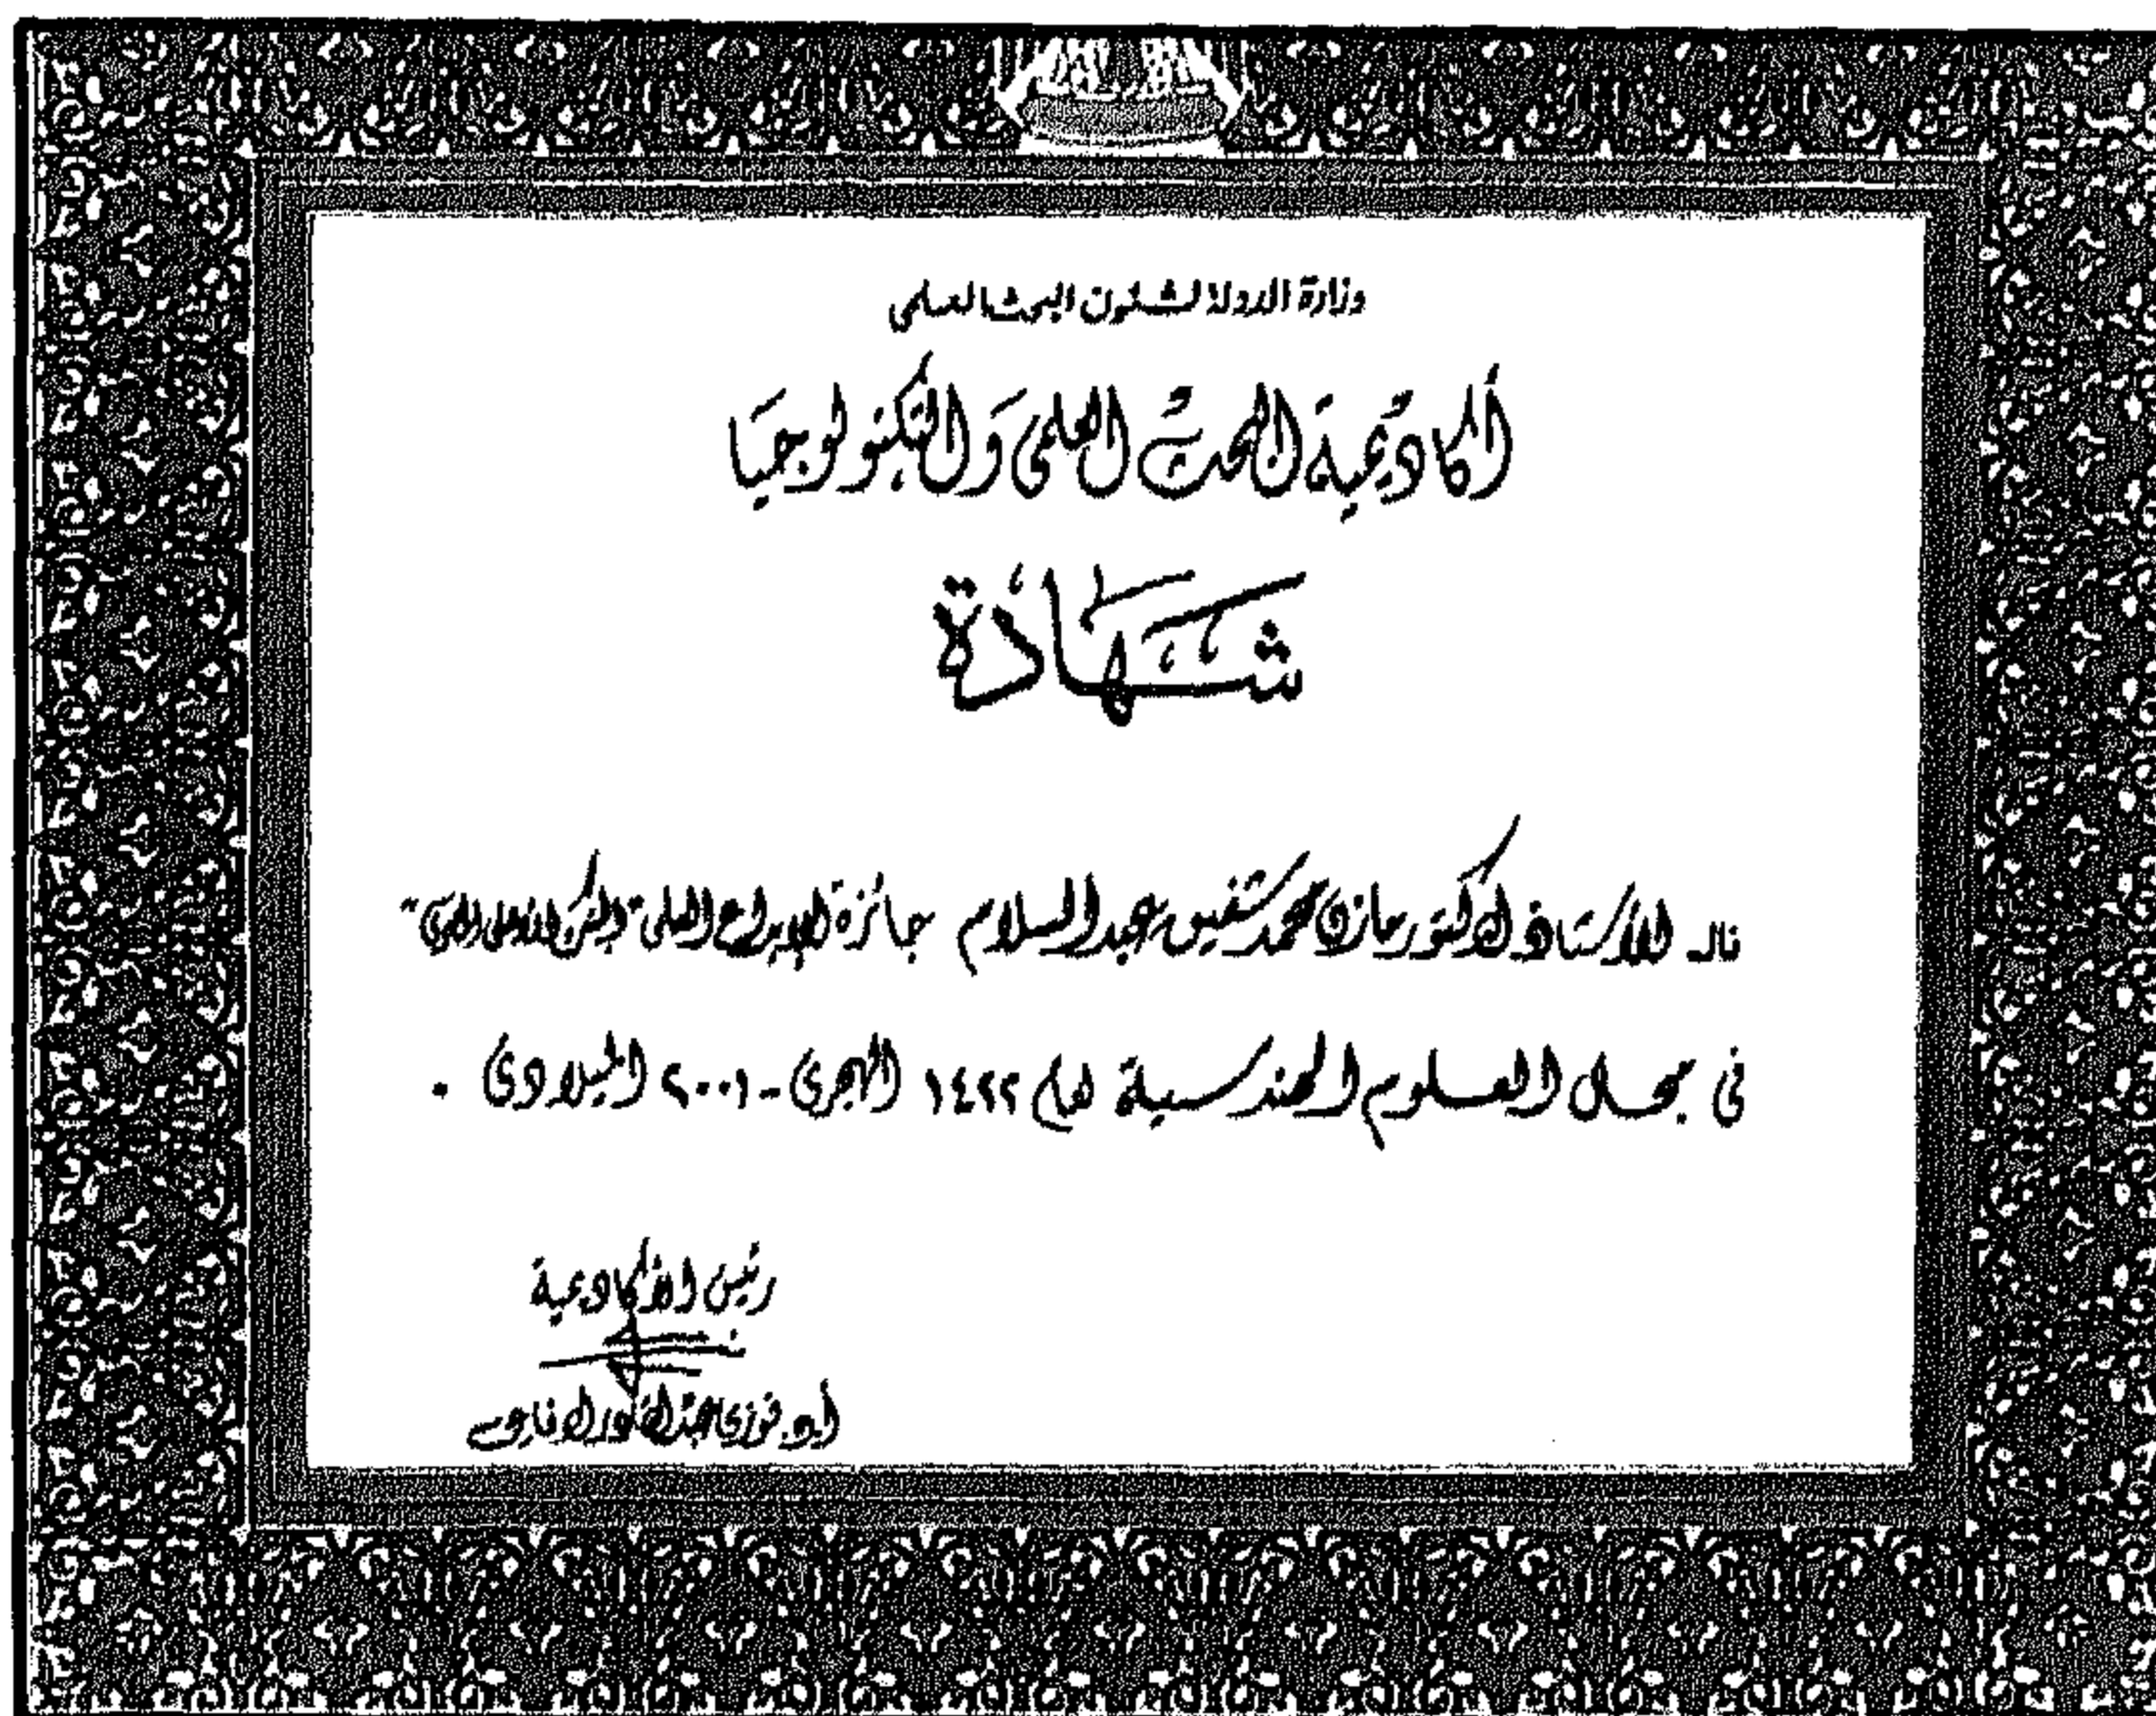 وزارة الدولة لشئون البحث العلمى
أكاديمية البحث العلمى والتكنولوجيا
شهادة
نال الأستاذ الدكتور مازن محمد شفيق عبد السلام جائزة الإبداع العلمى
فى مجال العلوم الهندسية لعام ١٤٢٢ الهجرى - ٢٠٠١ الميلادى .
رئيس الأكاديمية
أ.د. فوزى عبد القادر الرفاعى